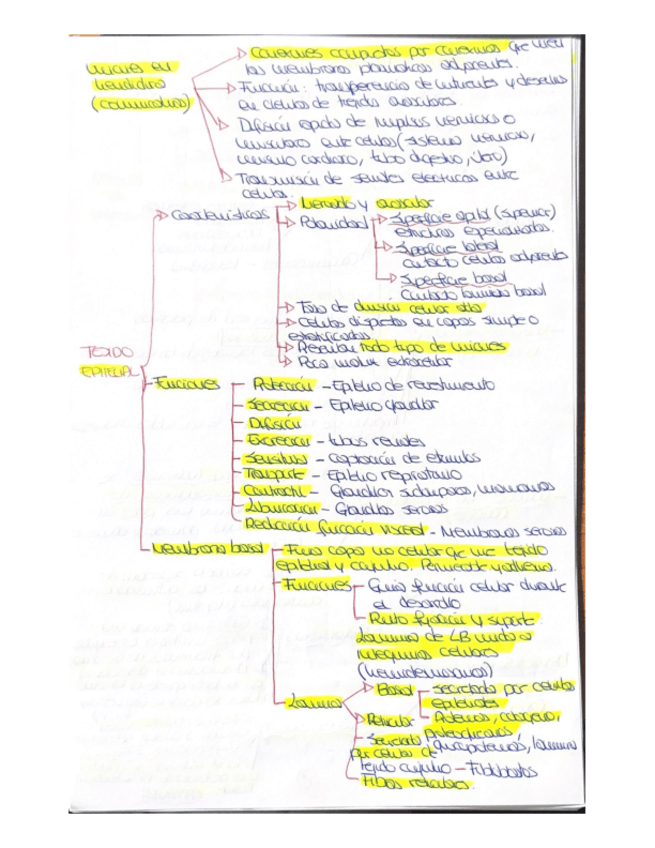 Uniones en
hendidura
(comunicantes)
Conexiones compuestas por conexinas que unen
las membranas plasmáticas adyacentes.
Función: transferencia de nutrientes y desechos
en células de tejido avascular.
Difusión rápida de impulsos nerviosos o
musculares entre células (sistema nervioso,
músculo cardiaco, tubo digestivo, útero)
Transmisión de señales eléctricas entre
células.
TEJIDO
EPITELIAL
Características
Inervado y avascular
Polaridad
Superficie apical (superior)
estructuras especializadas.
Superficie lateral
contacto células adyacentes
Superficie basal
contacto lámina basal
Tasa de división celular alta
Células dispuestas en capas simple o
estratificadas
Presentan todo tipo de uniones
Poca matriz extracelular
Funciones
Protección - Epitelio de revestimiento
Secreción - Epitelio glandular
Difusión
Excreción - tubos renales
Sensitiva - captación de estímulos
Transporte - Epitelio respiratorio
Contráctil - Glándulas sudoríparas, mamarias
Lubricación - Glándulas serosas
Reducción fricción visceral - Membranas serosas
Membrana basal
Fina capa no celular que une tejido
epitelial y conjuntivo. Permeable y adherente.
Funciones
Guía función celular durante
el desarrollo
Punto fijación y soporte:
Laminina de LB unida a
integrinas celulares
(hemidesmosomas)
Láminas
Basal
secretada por células
epiteliales
Proteínas, colágeno,
proteoglicanos
glucoproteínas, laminina
Reticular
Secretada
por células de
tejido conjuntivo - Fibroblastos
Fibras reticulares.